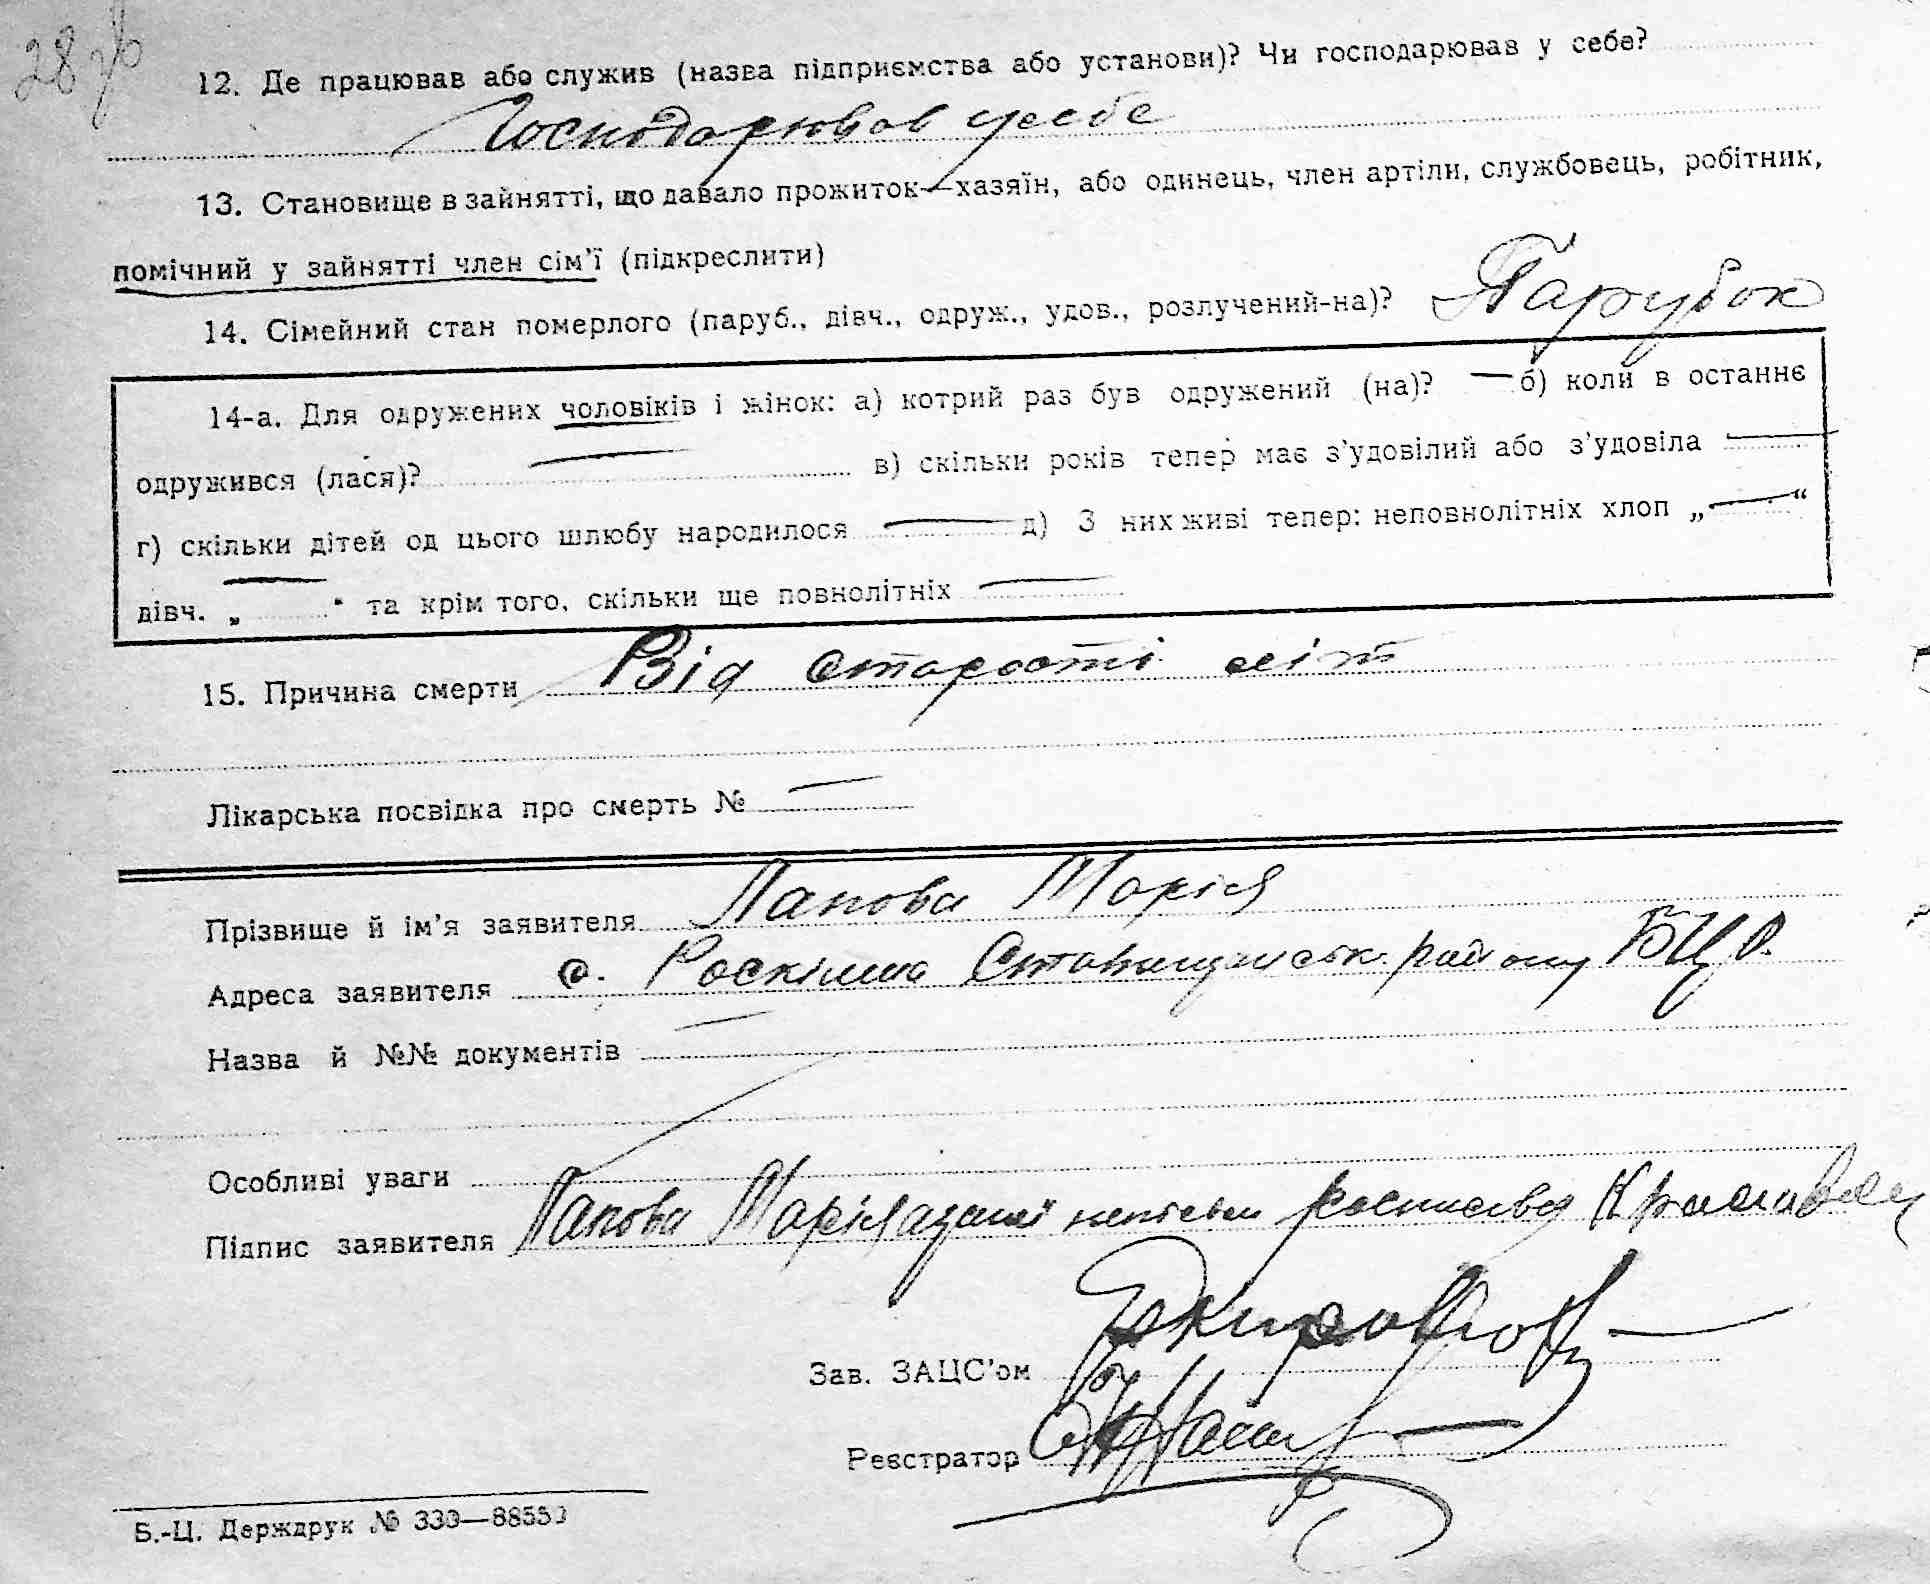 28 зв
12. Де працював або служив (назва підприємства або установи)? Чи господарював у себе?
Господарював у себе
13. Становище в зайнятті, що давало прожиток—хазяїн, або одинець, член артіли, службовець, робітник,
помічний у зайнятті член сім'ї (підкреслити)
14. Сімейний стан померлого (паруб., дівч., одруж., удов., розлучений-на)? Парубок
14-а. Для одружених чоловіків і жінок: а) котрий раз був одружений (на)? — б) коли в останнє
одружився (лася)? — в) скільки років тепер має з'удовілий або з'удовіла —
г) скільки дітей од цього шлюбу народилося — д) З них живі тепер: неповнолітніх хлоп „—“
дівч. „—" та крім того, скільки ще повнолітніх —
15. Причина смерти Від старості літ
Лікарська посвідка про смерть № —
Прізвище й ім'я заявителя Лапова Марія
Адреса заявителя с. Роскішна Ставищанськ. району БЦО.
Назва й №№ документів —
Особливі уваги
Підпис заявителя Лапова Марія
Зав. ЗАЦС'ом
Реєстратор
Б.-Ц. Держдрук № 333—88550